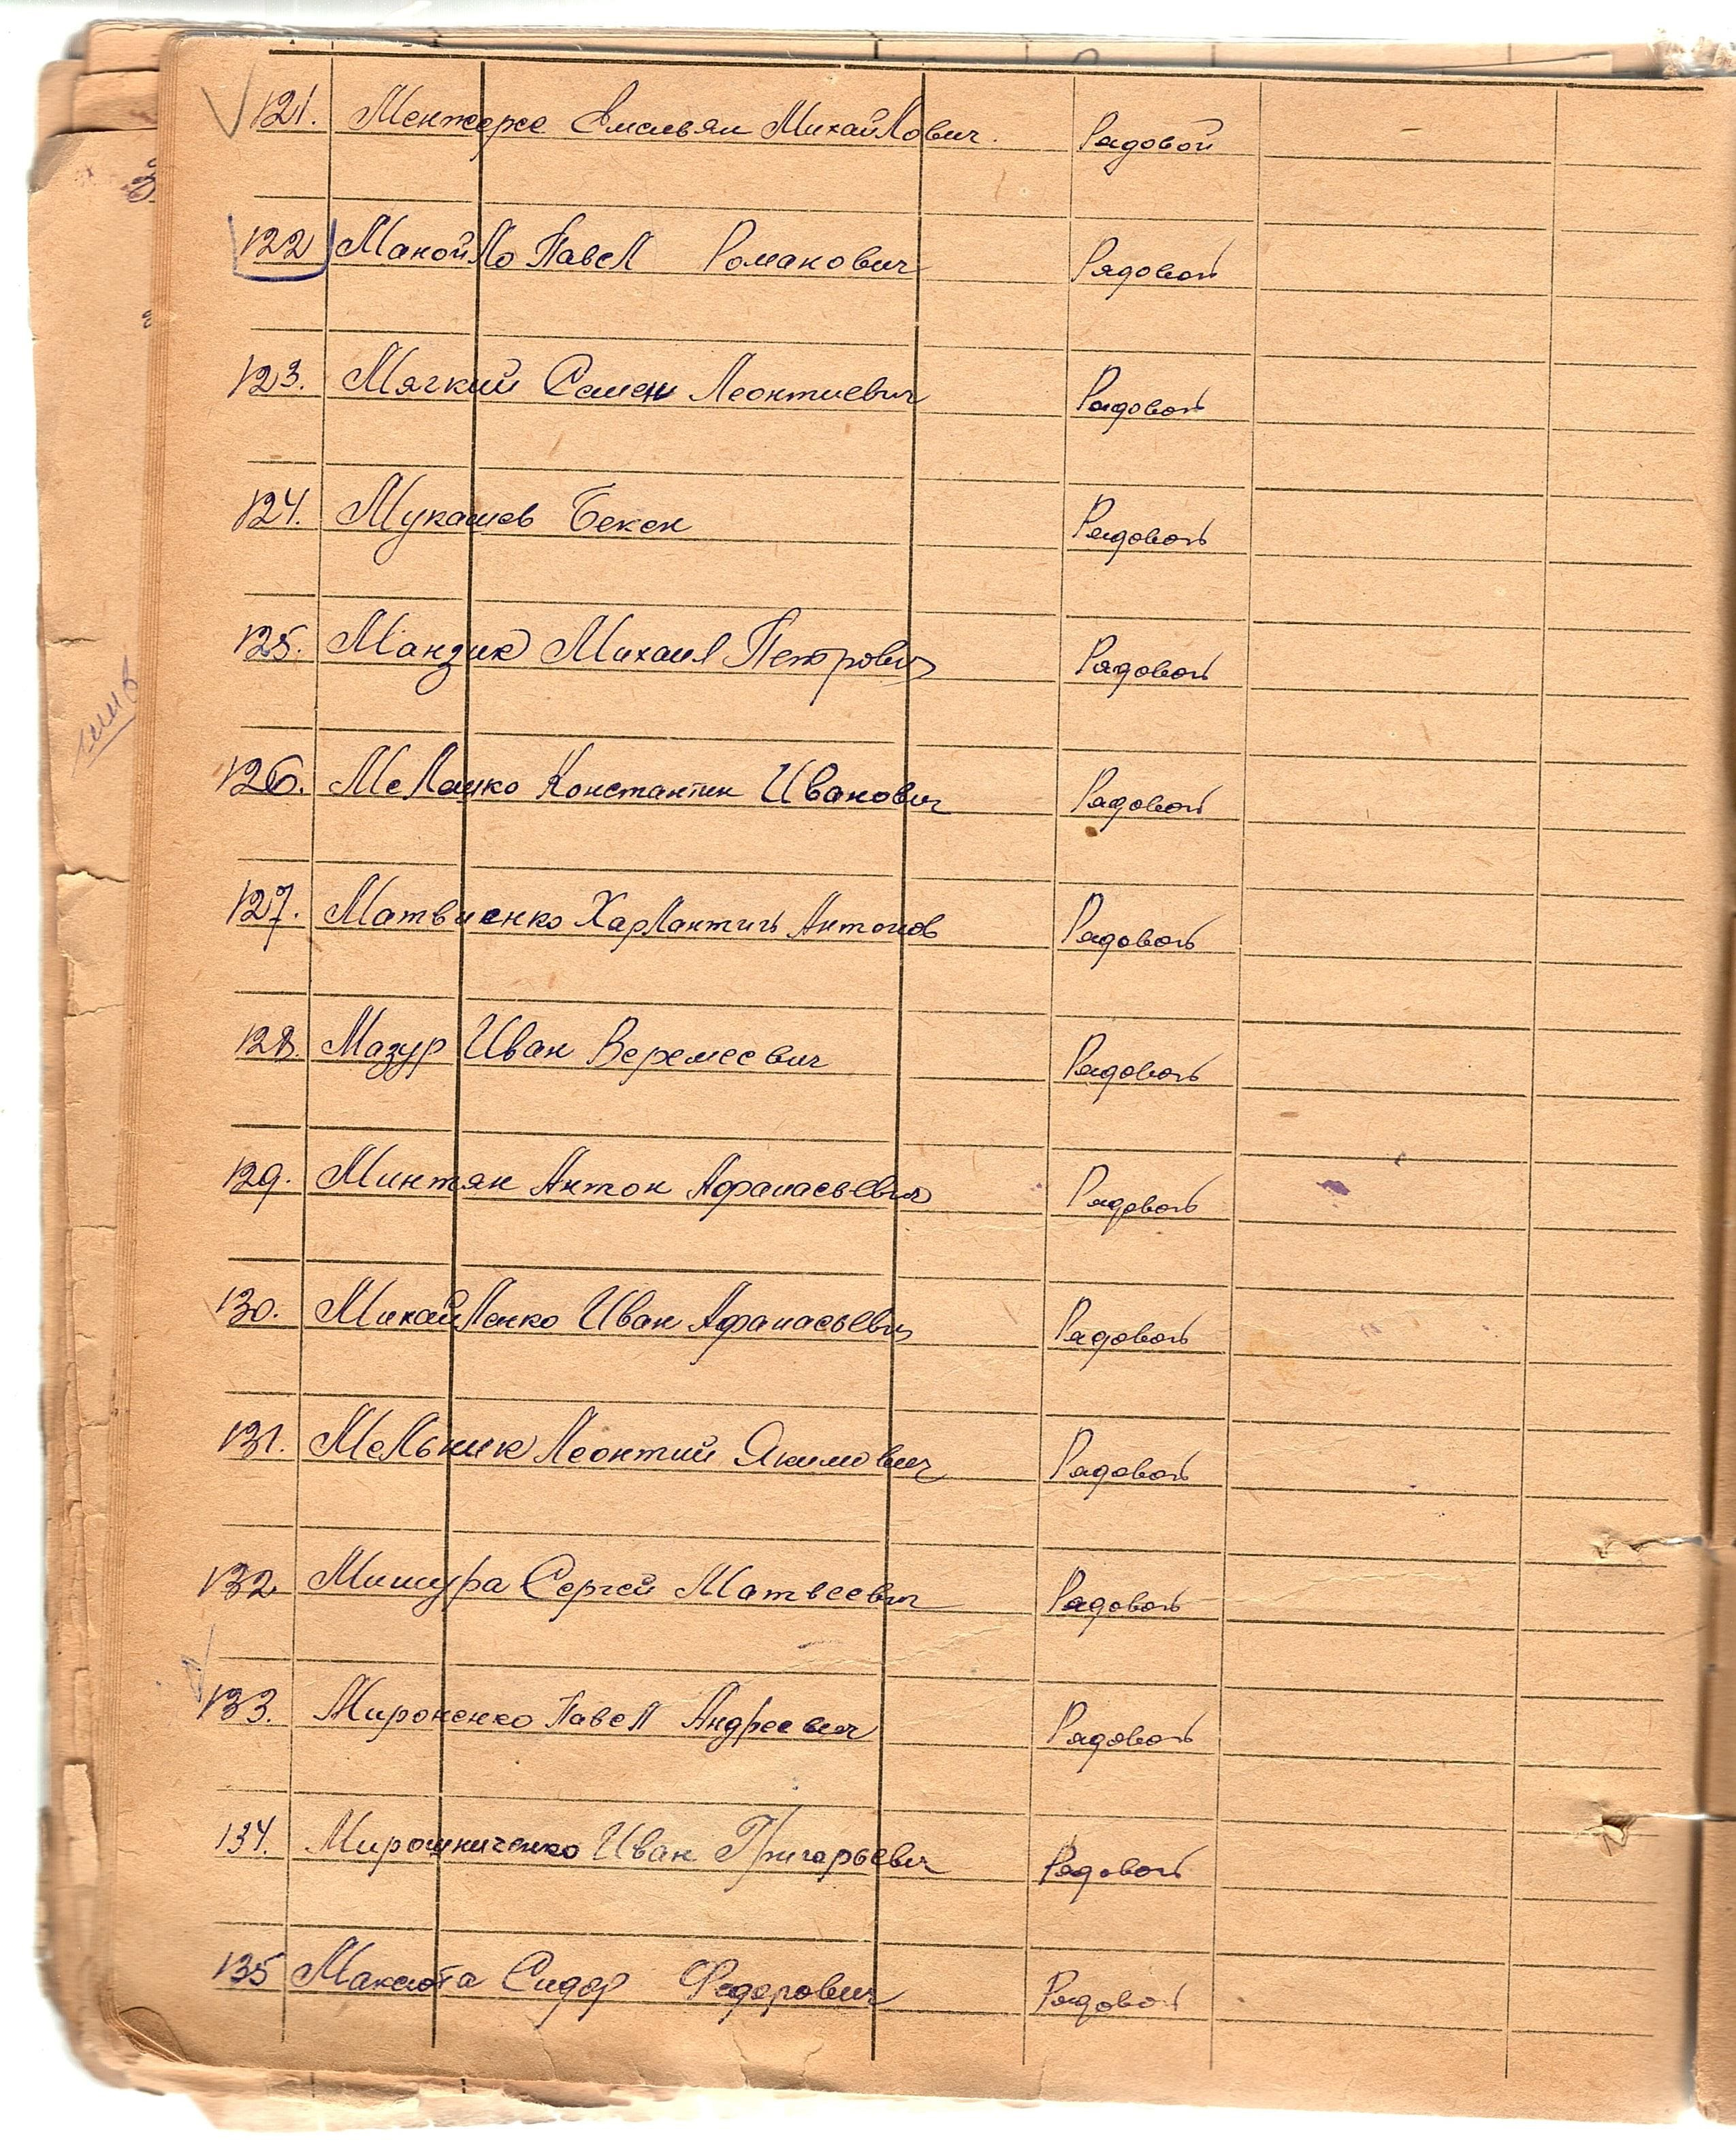 121. Менжерес Емельян Михайлович. Рядовой
122 Манойло Павел Романович Рядовой
123. Мягкий Семен Леонтиевич Рядовой
124. Мукашев Бекен Рядовой
125. Манзик Михаил Петрович Рядовой
126. Мелашко Константин Иванович Рядовой
127. Матвиенко Харлантий Антонов Рядовой
128. Мазур Иван Веремеевич Рядовой
129. Минтян Антон Афанасьевич Рядовой
130. Михайленко Иван Афанасьевич Рядовой
131. Мельник Леонтий Якимович Рядовой
132 Мишура Сергей Матвеевич Рядовой
133. Мироненко Павел Андреевич Рядовой
134. Мирошниченко Иван Григорьевич Рядовой
135 Максюта Сидор Федорович Рядовой